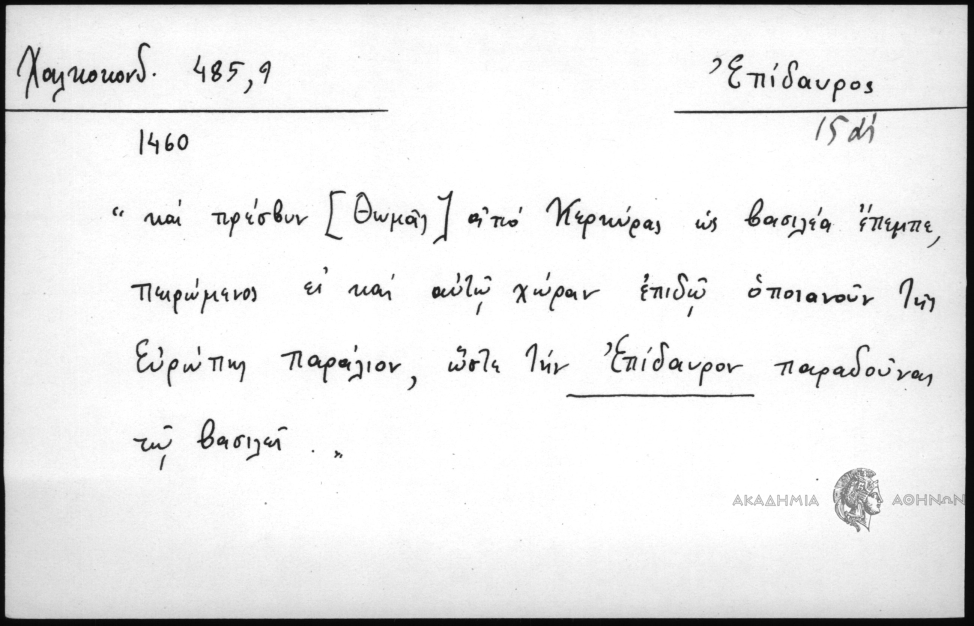 Χαλκοκονδ. 485,9
Ἐπίδαυρος
1460
15 αἰ
“ καὶ πρέσβυν [Θωμᾶς] ἀπὸ Κερκύρας ὡς βασιλέα ἔπεμπε,
πειρώμενος εἰ καὶ αὐτῷ χώραν ἐπιδῷ ὁποιανοῦν τῆς
Εὐρώπης παράλιον, ὥστε τὴν Ἐπίδαυρον παραδοῦναι
τῷ βασιλεῖ . „
ΑΚΑΔΗΜΙΑ ΑΘΗΝΩΝ